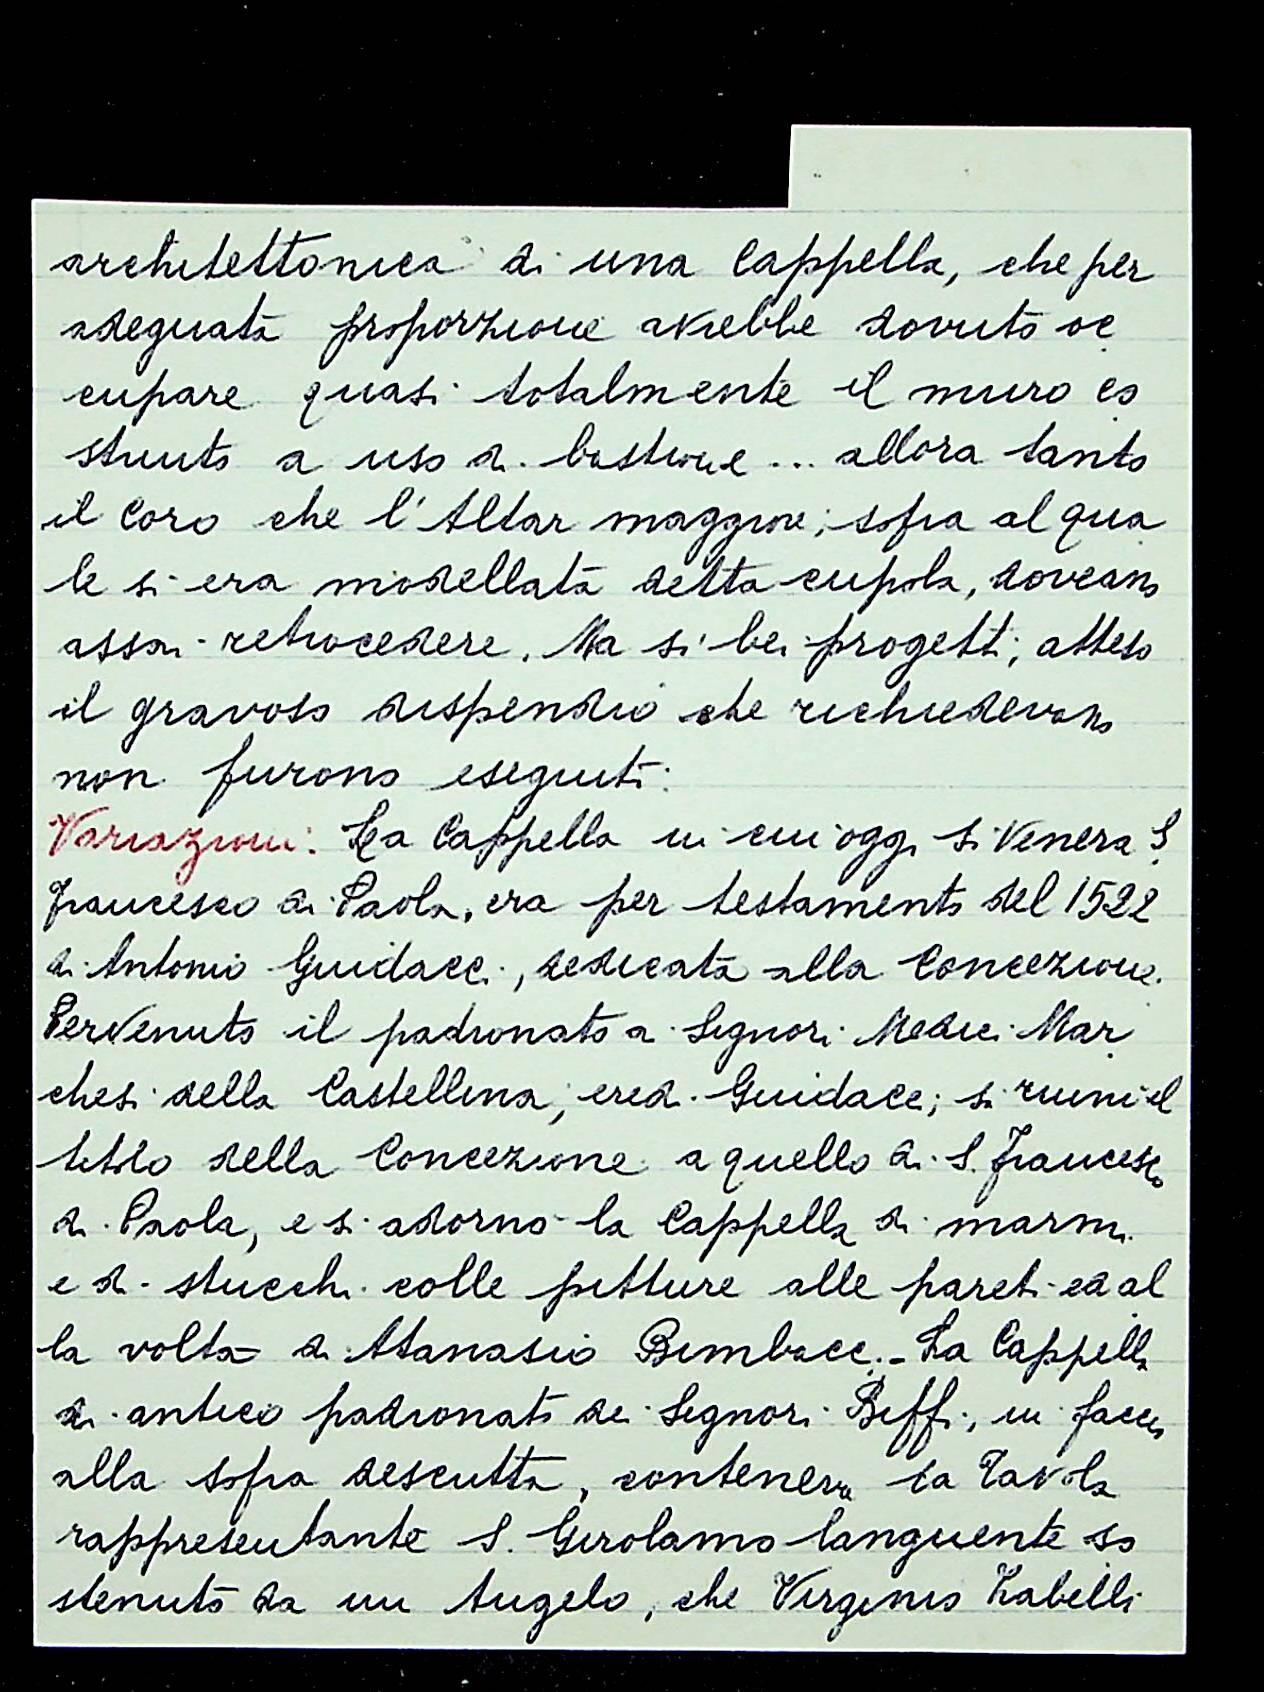 architettonica di una Cappella, che per
adeguata proporzione avrebbe dovuto oc
cupare quasi totalmente il muro co
struito a uso di bastione... allora tanto
il Coro che l'Altar maggiore, sopra al qua
le si era modellata detta cupola, doveano
assai retrocedere. Ma si bei progetti, atteso
il gravoso dispendio che richiedevano
non furono eseguiti:
Variazioni: La Cappella in cui oggi si Venera S.
Francesco di Paola, era per testamento del 1522
di Antonio Guidacci, dedicata alla Concezione.
Pervenuto il padronato a Signori Medici Mar
chesi della Castellina, eredi Guidacci, si riunì il
titolo della Concezione a quello di S. Francesco
di Paola, e si adornò la Cappella di marmi
e di stucchi colle pitture alle pareti ed al
la volta di Atanasio Bimbacci. - La Cappella
di antico padronato dei Signori Biffi, in faccia
alla sopra descritta, conteneva la Tavola
rappresentante S. Girolamo languente so
stenuto da un Angelo, che Virginio Zabelli